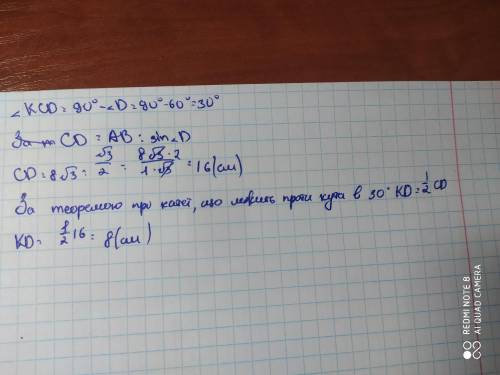 ∠KCD = 90° - ∠D = 90° - 60° = 30°
CD = AB : sin∠D
CD = 8√3 : √3/2 = 8√3·2/1·√3 = 16 (см)
За теоремою про катет, що лежить проти кута в 30° KD = 1/2 CD
KD = 1/2 16 = 8 (см)
REDMI NOTE 8
AI QUAD CAMERA